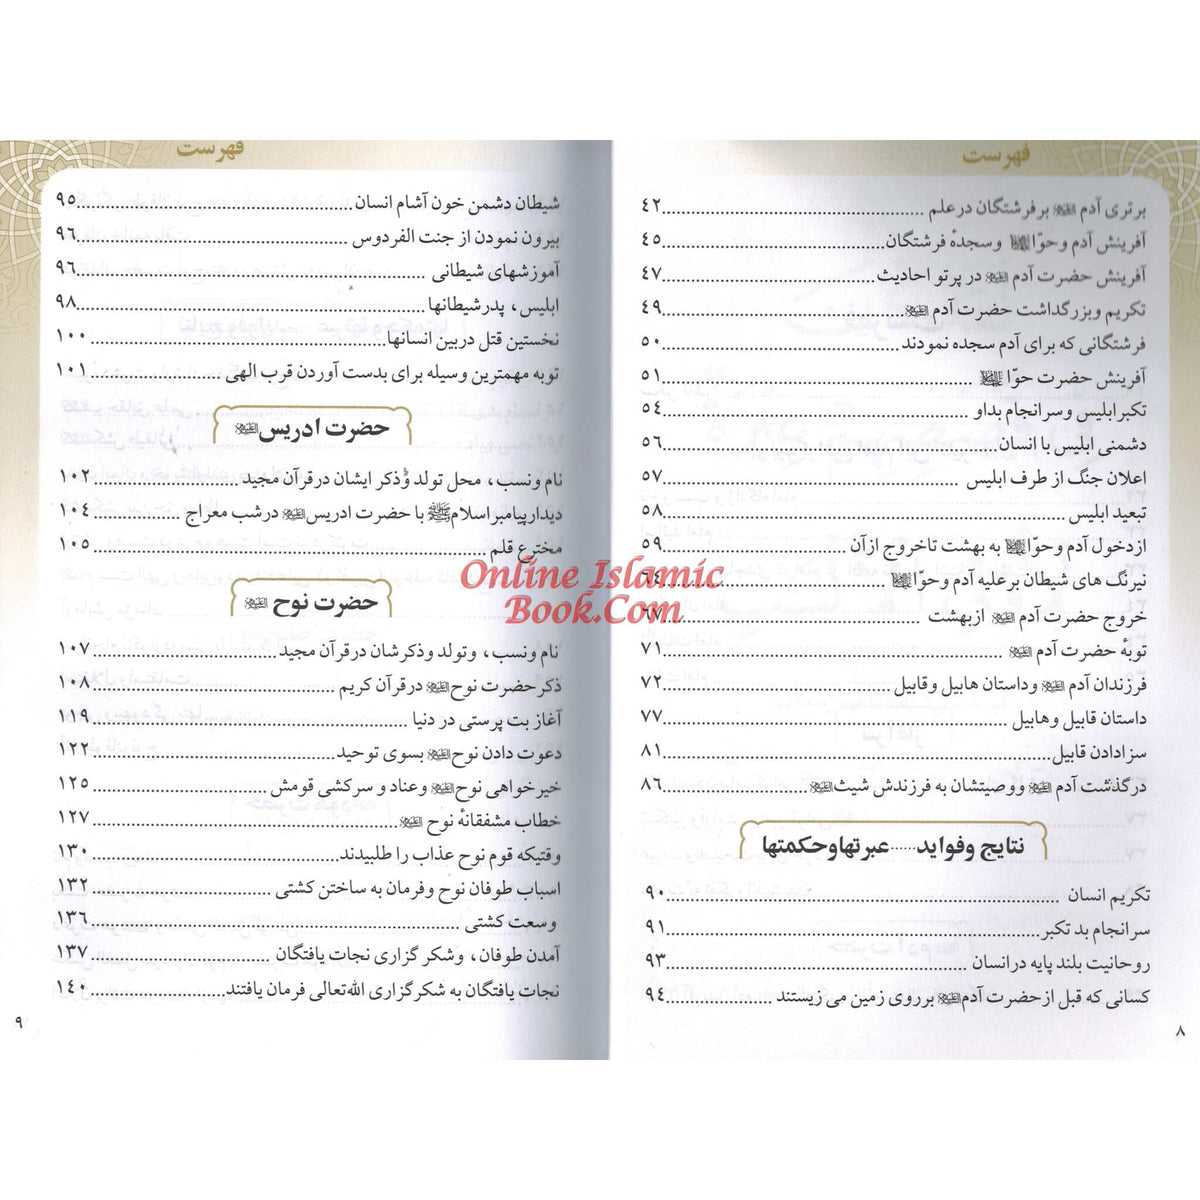 فهرست
برتری آدم علیه السلام بر فرشتگان در علم ............ ٤٢
آفرینش آدم وحوّا علیهما السلام وسجدهٔ فرشتگان ............ ٤٥
آفرینش حضرت آدم علیه السلام در پرتو احادیث ............ ٤٧
تکریم وبزرگداشت حضرت آدم علیه السلام ............ ٤٩
فرشتگانی که برای آدم سجده نمودند ............ ٥٠
آفرینش حضرت حوّا علیها السلام ............ ٥١
تکبرابلیس وسرانجام بداو ............ ٥٤
دشمنی ابلیس با انسان ............ ٥٦
اعلان جنگ از طرف ابلیس ............ ٥٧
تبعید ابلیس ............ ٥٨
ازدخول آدم وحوّا علیهما السلام به بهشت تاخروج ازآن ............ ٥٩
نیرنگ های شیطان برعلیه آدم وحوّا علیهما السلام ............ ٦٤
خروج حضرت آدم علیه السلام ازبهشت ............ ٦٧
توبهٔ حضرت آدم علیه السلام ............ ٧١
فرزندان آدم علیه السلام وداستان هابیل وقابیل ............ ٧٢
داستان قابیل وهابیل ............ ٧٧
سزادادن قابیل ............ ٨١
درگذشت آدم علیه السلام ووصیتشان به فرزندش شیث علیه السلام ............ ٨٦
نتایج وفواید ...... عبرتهاوحکمتها
تکریم انسان ............ ٩٠
سرانجام بد تکبر ............ ٩١
روحانیت بلند پایه درانسان ............ ٩٣
کسانی که قبل ازحضرت آدم علیه السلام برروی زمین می زیستند ............ ٩٤
٨
فهرست
شیطان دشمن خون آشام انسان ............ ٩٥
بیرون نمودن از جنت الفردوس ............ ٩٦
آموزشهای شیطانی ............ ٩٦
ابلیس، پدرشیطانها ............ ٩٨
نخستین قتل دربین انسانها ............ ١٠٠
توبه مهمترین وسیله برای بدست آوردن قرب الهی ............ ١٠١
حضرت ادریس علیه السلام
نام ونسب، محل تولد وذکر ایشان درقرآن مجید ............ ١٠٢
دیدارپیامبراسلام ﷺ با حضرت ادریس علیه السلام درشب معراج ............ ١٠٤
مخترع قلم ............ ١٠٥
حضرت نوح علیه السلام
نام ونسب، وتولد وذکرشان درقرآن مجید ............ ١٠٧
ذکرحضرت نوح علیه السلام درقرآن کریم ............ ١٠٨
آغاز بت پرستی در دنیا ............ ١١٩
دعوت دادن نوح علیه السلام بسوی توحید ............ ١٢٢
خیرخواهی نوح علیه السلام وعناد و سرکشی قومش ............ ١٢٥
خطاب مشفقانهٔ نوح علیه السلام ............ ١٢٧
وقتیکه قوم نوح عذاب را طلبیدند ............ ١٣٠
اسباب طوفان نوح وفرمان به ساختن کشتی ............ ١٣٢
وسعت کشتی ............ ١٣٦
آمدن طوفان، وشکر گزاری نجات یافتگان ............ ١٣٧
نجات یافتگان به شکرگزاری الله‌تعالی فرمان یافتند ............ ١٤٠
٩
Online Islamic
Book.Com